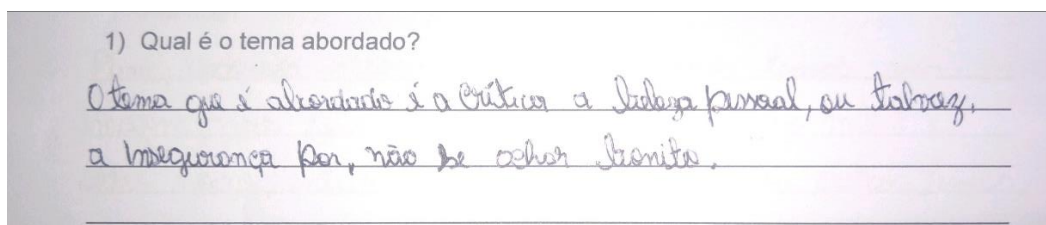 1) Qual é o tema abordado?
O tema que é abordado é a crítica a beleza pessoal, ou talvez,
a insegurança por, não se achar bonito.